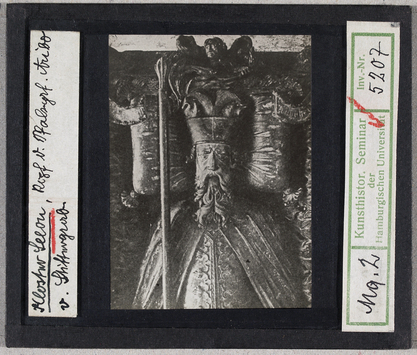 Kloster Seeon, Kopf d. Pfalzgrf. Aribo
v. Stiftergrab
Kunsthistor. Seminar
der
Hamburgischen Universität
Inv.-Nr.
5207